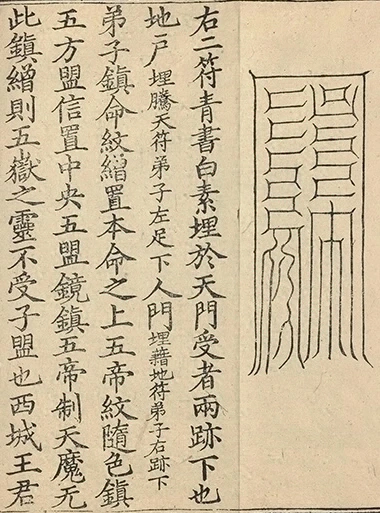 右二符青書白素埋於天門受者兩跡下也
地户埋騰天符弟子左足下人門埋藉地符弟子右跡下
弟子鎮命紋繒置本命之上五帝紋隨色鎮
五方盟信置中央五盟鏡鎮五帝制天魔无
此鎮繒則五嶽之靈不受子盟也西城王君